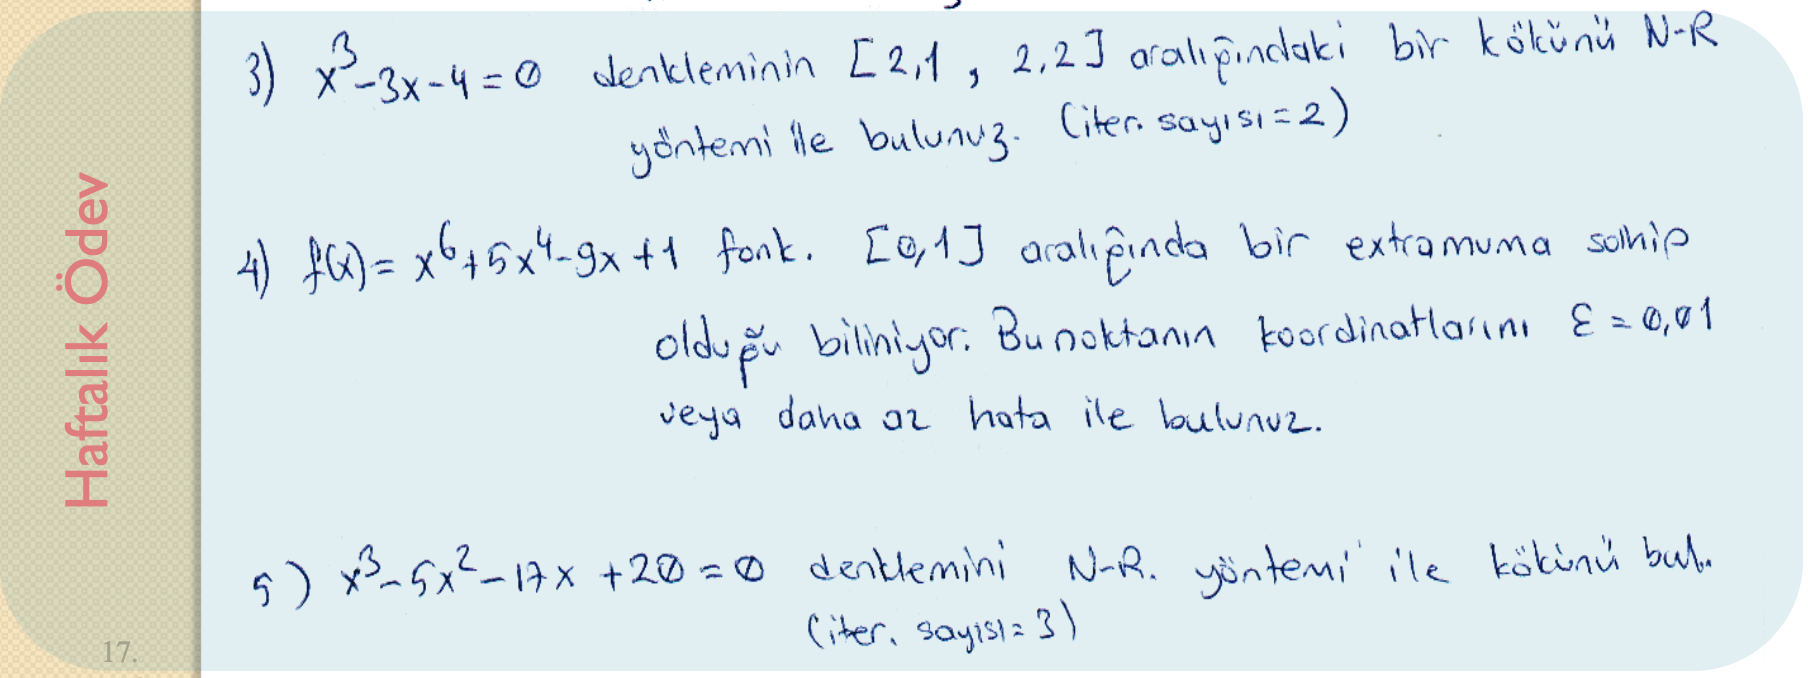 Haftalık Ödev
3) x³-3x-4=0 denkleminin [2,1 , 2,2] aralığındaki bir kökünü N-R
yöntemi ile bulunuz. (iter. sayısı=2)
4) f(x)= x⁶+5x⁴-9x+1 fonk. [0,1] aralığında bir extramuma sahip
olduğu biliniyor. Bu noktanın koordinatlarını ε=0,01
veya daha az hata ile bulunuz.
5) x³-5x²-17x+20=0 denklemini N-R. yöntemi ile kökünü bul.
(iter. sayısı=3)
17.